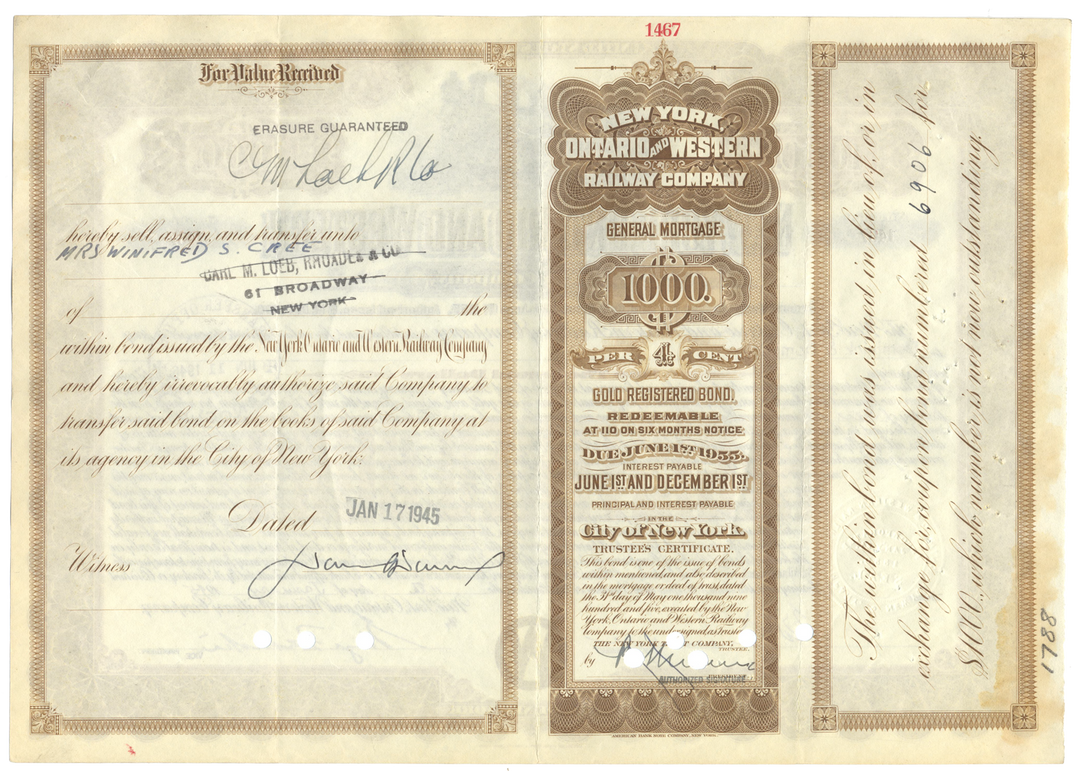 1467
For Value Received
ERASURE GUARANTEED
C M Loeb R Co
hereby sell, assign, and transfer unto
MRS WINIFRED S. CREE
CARL M. LOEB, RHOADES & CO.
61 BROADWAY
NEW YORK
of the
within bond issued by the New York Ontario and Western Railway Company
and hereby irrevocably authorize said Company to
transfer said bond on the books of said Company at
its agency in the City of New York:
Dated JAN 17 1945
Witness
NEW YORK,
ONTARIO AND WESTERN
RAILWAY COMPANY
GENERAL MORTGAGE
$1000.
4 PER CENT
GOLD REGISTERED BOND,
REDEEMABLE
AT 110 ON SIX MONTHS NOTICE
DUE JUNE 1ST, 1955.
INTEREST PAYABLE
JUNE 1ST AND DECEMBER 1ST
PRINCIPAL AND INTEREST PAYABLE
IN THE
City of New York.
TRUSTEE'S CERTIFICATE.
This bond is one of the issue of bonds
within mentioned, and also described
in the mortgage or deed of trust, dated
the 31st day of May one thousand nine
hundred and five, executed by the New
York, Ontario and Western Railway
Company to the undersigned, as Trustee
THE NEW YORK TRUST COMPANY,
TRUSTEE.
by
AUTHORIZED SIGNATURE
AMERICAN BANK NOTE COMPANY, NEW YORK.
The within bond was issued in lieu of, or in
exchange for, coupon bond numbered 6906 for
$1000., which number is not now outstanding.
1788